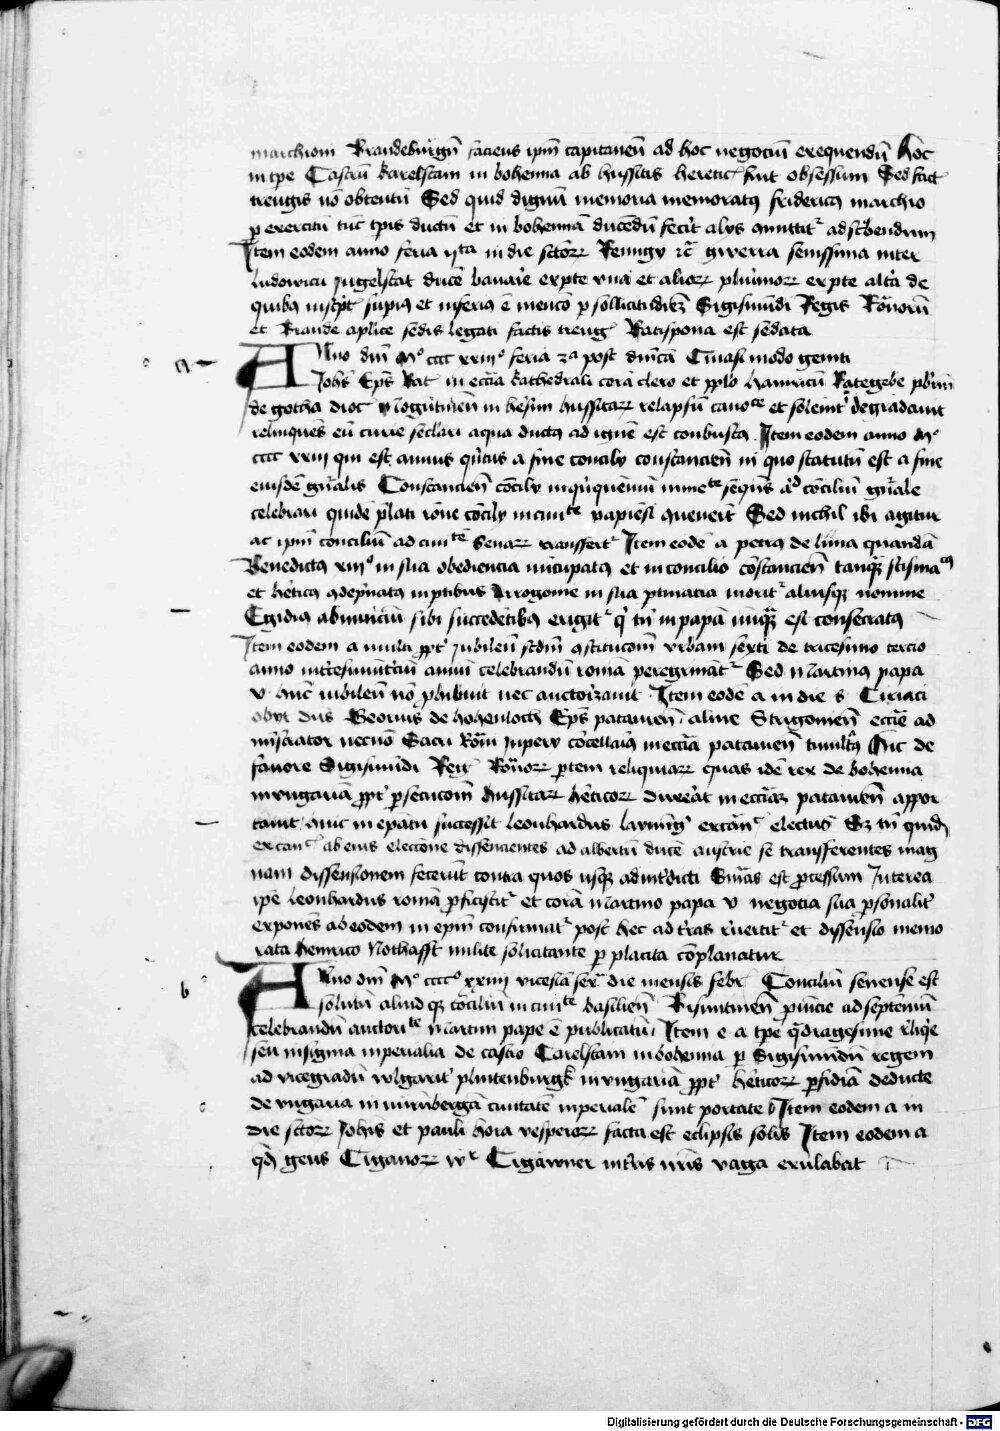 marchionem Brandeburgn̄ faciens ip̄m capitaneū ad hoc negociū exequendū Hoc
in tp̄e Castrū Karelstain in bohemia ab hussitis heretic̄ fuit obsessum Sed fact̄
treugis nō obtentū Sed quid dignū memoria memoratꝰ fridericꝰ marchio
ꝑ exercitū tūc tp̄is ductū et in bohemiā ducendū fec̄it alijs ad scribendum
Item eodem anno feria in die sc̄tōꝝ Remigij ꝛc̄ gwerra seuissima inter
Ludowicū Ingelstat ducē bauarie ex p̄te vna et alioꝝ plurimoꝝ ex p̄te alt̄a de
quibꝰ supiꝰ et inferiꝰ ē ꝑ sollicitudinē Sigismūdi Regis Rōnorū
et Brande ap̄lice sedis legati factis treuḡ Ratispona est sedata
Anno dn̄i Mº cccc xxiijº feria 2ª post dn̄icā Quasi modo geniti
Joh̄s Ep̄s Rat̄ in ecc̄ia kathedrali corā clero et pp̄lo hainricū Rategebe pb̄rm̄
de gotha dioc̄ Mogūtineñ in heresim hussitaꝝ relapsū cano^ce et solenit̄ degradauit
relinquēs eū curie sec̄lari a qua ductꝰ ad ignē est conbustꝰ Item eodem anno Mº
cccc xxiij qui est annus quītus a fine concilij constancieñ in quo statutū est a fine
eiusdē gn̄alis Constancieñ cōcilij in quīquenniū inme^te sequēs aliud cōciliū gn̄ale
celebrari quidē p̄lati rōne cōcilij in ciui^te papiensi ꝯuenerūt Sed nichil ibi agitur
ac ip̄m conciliū ad ciui^tē Senaꝝ transfert̄ Item eodē a petrꝰ de luna quondā
Benedictꝰ xiijº in sua obediencia nūcupatꝰ et in concilio cōstancieñ tanqꝫ scisma^cꝰ
et hēticꝰ ꝯdēpnatꝰ in p̄tibus Arrogonie in sua p̄tinacia morit̄ aliusqꝫ nomine
Egidiꝰ ab sibi succedētibꝫ erigit̄ qͥ tn̄ in papā nūqꝫ est consecratꝰ
Item eodem a multi ꝓpt̄ Jubileū scd̄m ꝯstitucōm Vrbani sexti de tricesimo tercio
anno in tricesimūt̄ciū annū celebrandū romā peregrināt̄ Sed Martinꝰ papa
v hūc iubileū nō ꝓhibuit nec auctorizauit Item eodē a in die s Ciriaci
obijt dn̄s Georius de hohenloch Ep̄s patauieñ alme Strigonieñ ecc̄ie ad
mīstrator necnō Sacri Rom̄ Imperij cācellariꝰ in ecc̄ia patauieñ tumulatꝰ Hic de
fauore Sigismūdi Reḡ Rōnoꝝ p̄tem reliquiaꝝ quas idē rex de bohemia
in vngariā ꝓpt̄ ꝑsecucōm hussitaꝝ hēticoꝝ duxerat in ecc̄iaꝫ patauieñ appor
tauit huic in ep̄atu successit Leonhardus laymīḡ ex canō^c electus Sꝫ tn̄ quidā
ex can^c ab eius elecc̄one dissencientes ad albertū ducē austrie se transferentes mag
nam dissensionem fecerūt contra quos usqꝫ ad int̄dicti s̄n̄ias est ꝓcessum Interea
ip̄e Leonhardus romā ꝓficiscit̄ et corā Martino papa v negocia sua ꝑsonalit̄
exponēs ab eodem in ep̄m confirmat̄ post hec ad t̄ras reuertit̄ et dissensio memo
rata henrico Nothafft milite solicitante ꝑ placita cōplanatur
Anno dn̄i Mº ccccº xxiiij vicesīa sex^ta die mensis febr̄ Conciliū senense est
solutū aliud qꝫ cōciliū in ciui^te basilieñ Bisuntineñ ꝓuincie ad septenniū
celebrandū auctori^te Martini pape ē publicatū Item e a tp̄e qͣdragesime reliqͥe
seu insignia inperialia de castro Carelstain in bohemia ꝑ Sigismūdū regem
ad vicegradū wlgarit̄ plintenburgk̄ in vngariā ꝓpt̄ hēticoꝝ ꝑfidiā deducte
de vngaria in nurnbergā ciuitatē inperialē sunt portate Item eodem a in
die sc̄toꝝ Joh̄is et pauli hora vesperoꝝ facta est eclipsis solis Item eodem a
qd̄ā gens Ciganoꝝ w^r Cigäwner in t̄ris nr̄is vaga exulabat
a
b
c